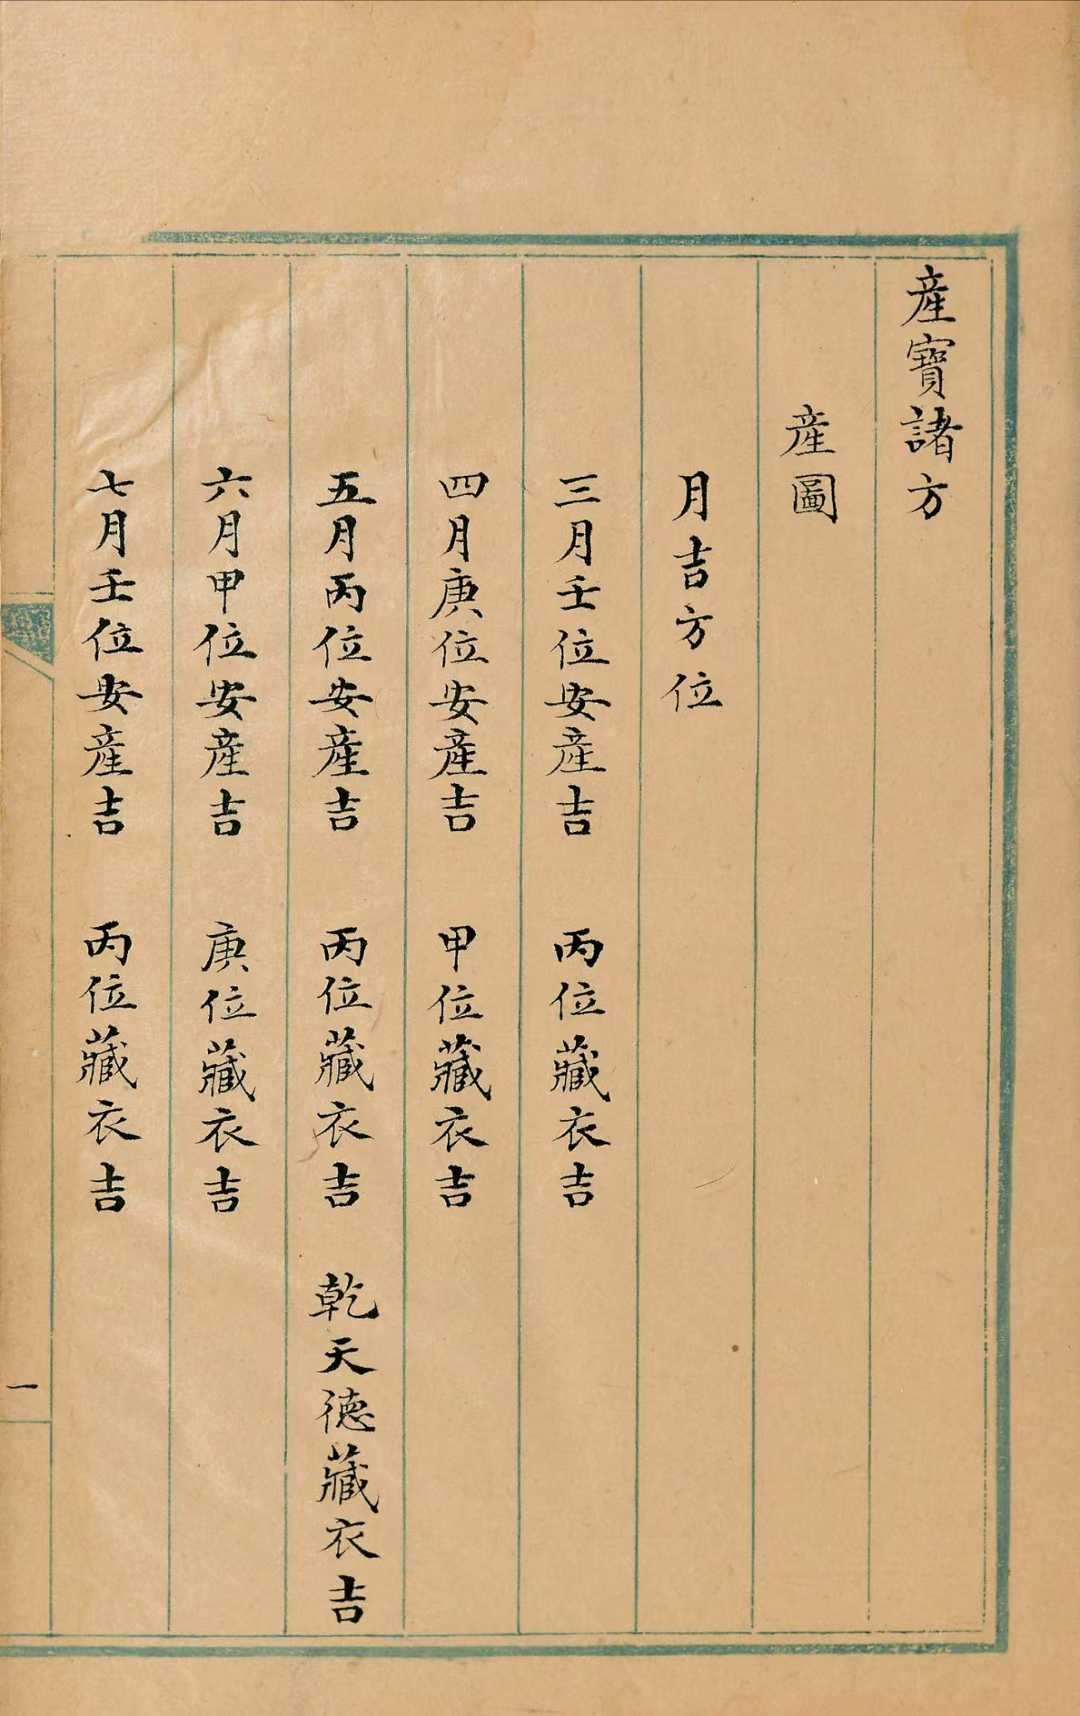 産寶諸方
産圖
月吉方位
三月壬位安産吉　丙位藏衣吉
四月庚位安産吉　甲位藏衣吉
五月丙位安産吉　丙位藏衣吉　乾天德藏衣吉
六月甲位安産吉　庚位藏衣吉
七月壬位安産吉　丙位藏衣吉
一